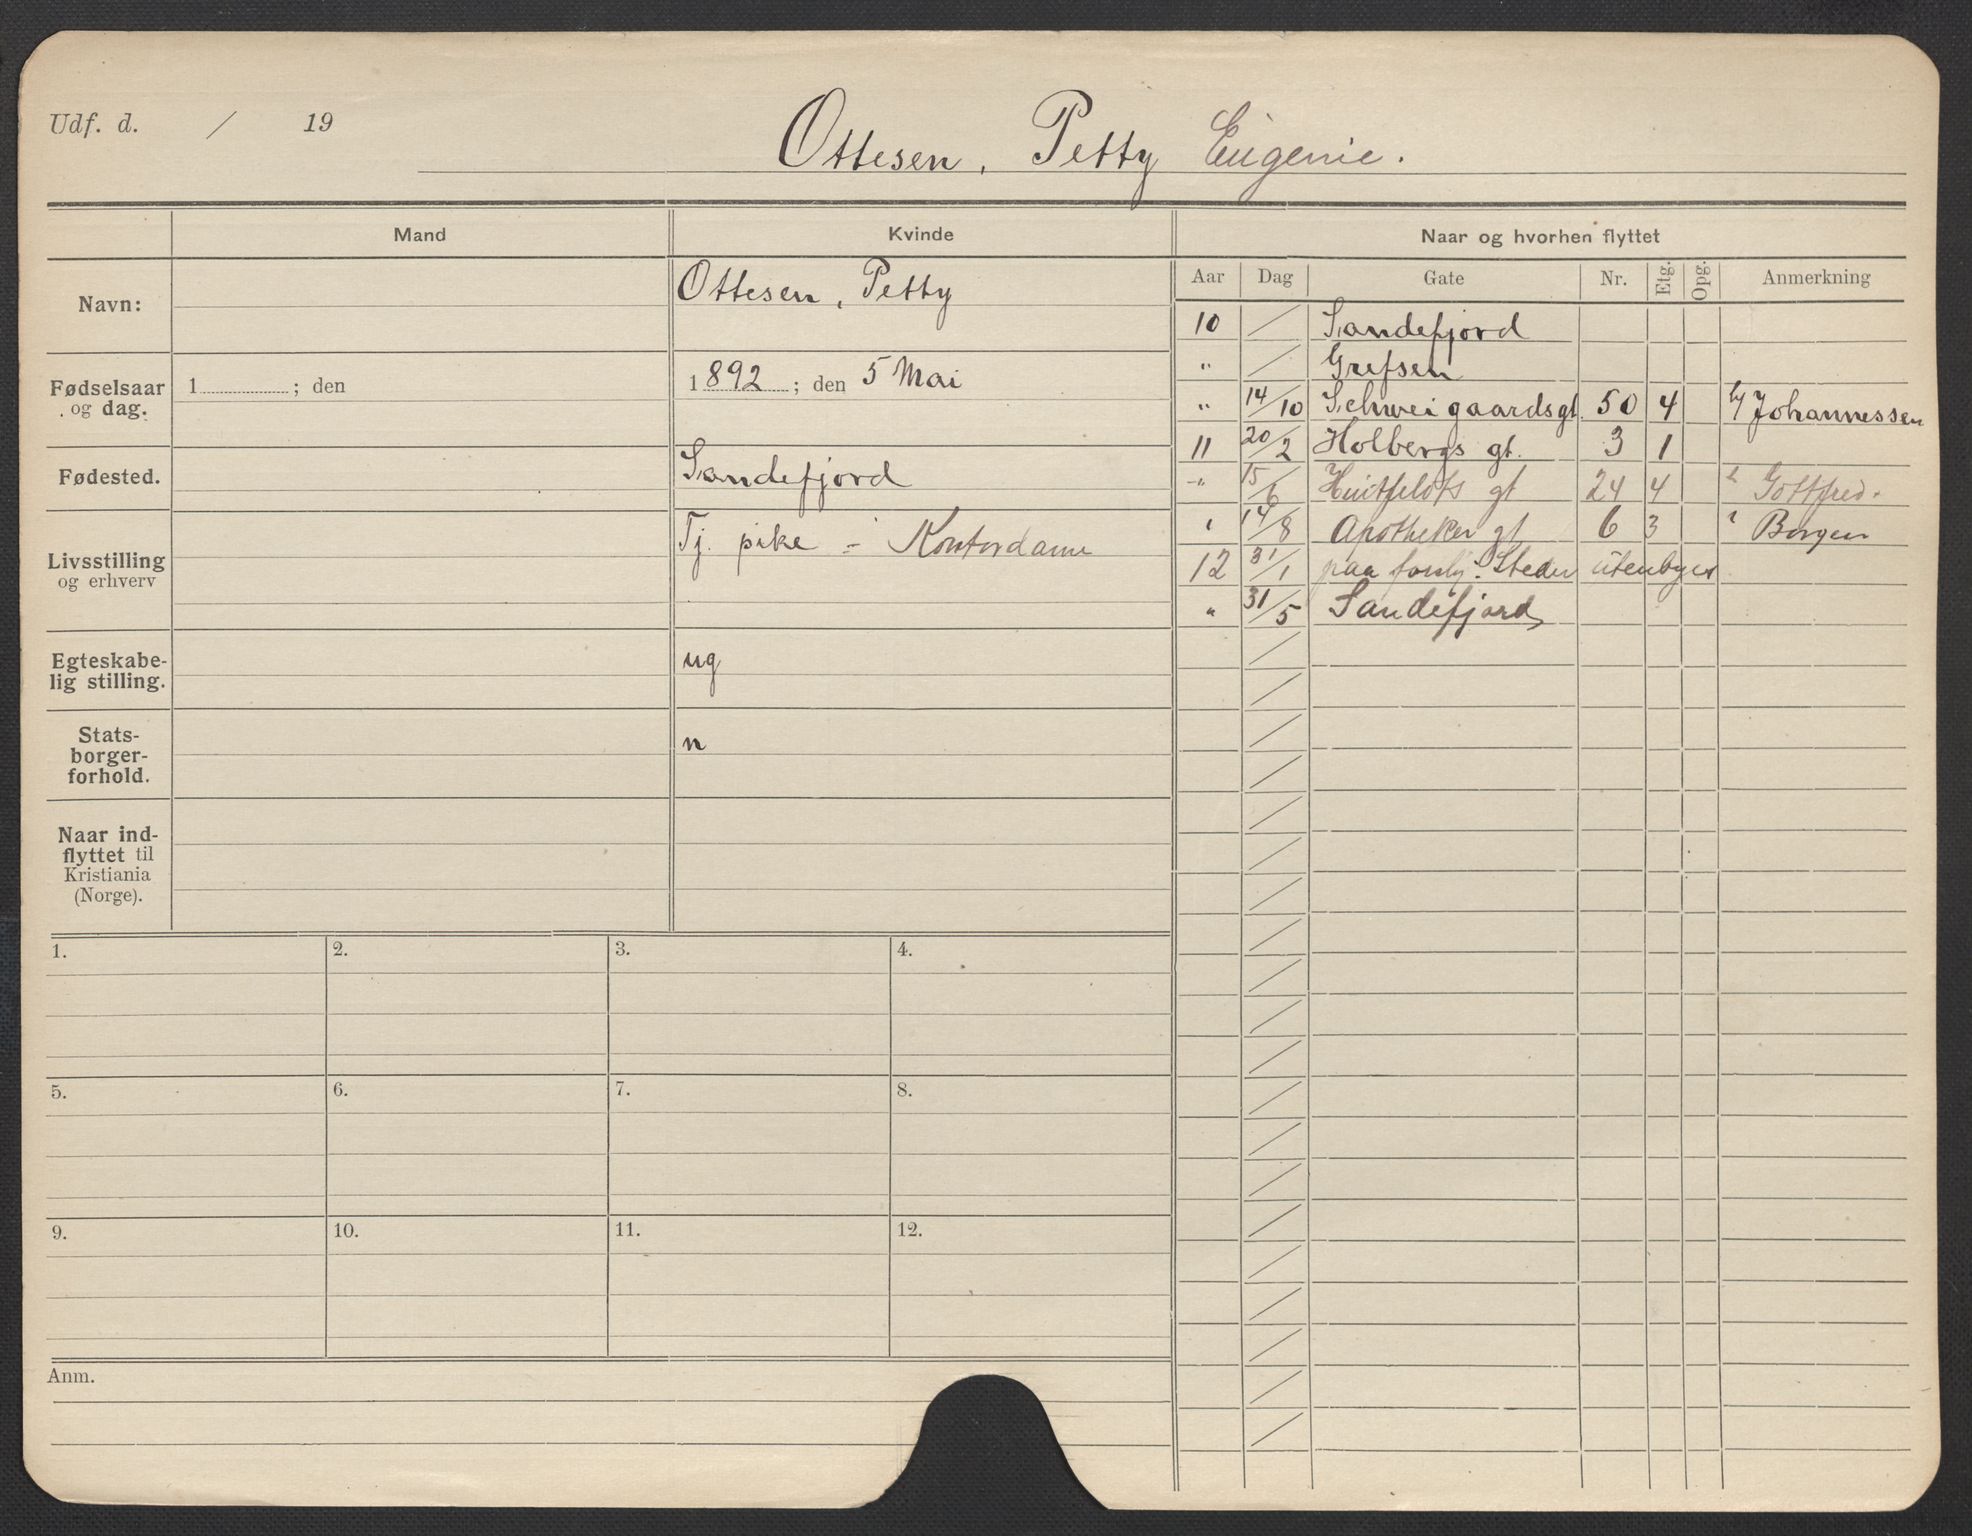 Udf. d. / 19
Ottesen, Petty Eugenie.
Mand Kvinde Naar og hvorhen flyttet
Aar Dag Gate Nr. Etg. Opg. Anmerkning
Navn: Ottesen, Petty
Fødselsaar og dag. 1 ; den 1892 ; den 5 Mai
Fødested. Sandefjord
Livsstilling og erhverv Tj. pike - Kontordame
Egteskabe-
lig stilling. ug
Stats-
borger-
forhold. n
Naar ind-
flyttet til
Kristiania
(Norge).
10 / Sandefjord
" / Grefsen
" 14/10 Schweigaardsgt. 50 4 h/ Johannessen
11 20/2 Holbergs gt. 3 1
" 15/6 Huitfeldts gt 24 4 Gottfred.
" 14/8 Apotheker gt 6 3 Borgen
12 31/1 paa forskj. Steder utenbyes
" 31/5 Sandefjord
1. 2. 3. 4.
5. 6. 7. 8.
9. 10. 11. 12.
Anm.